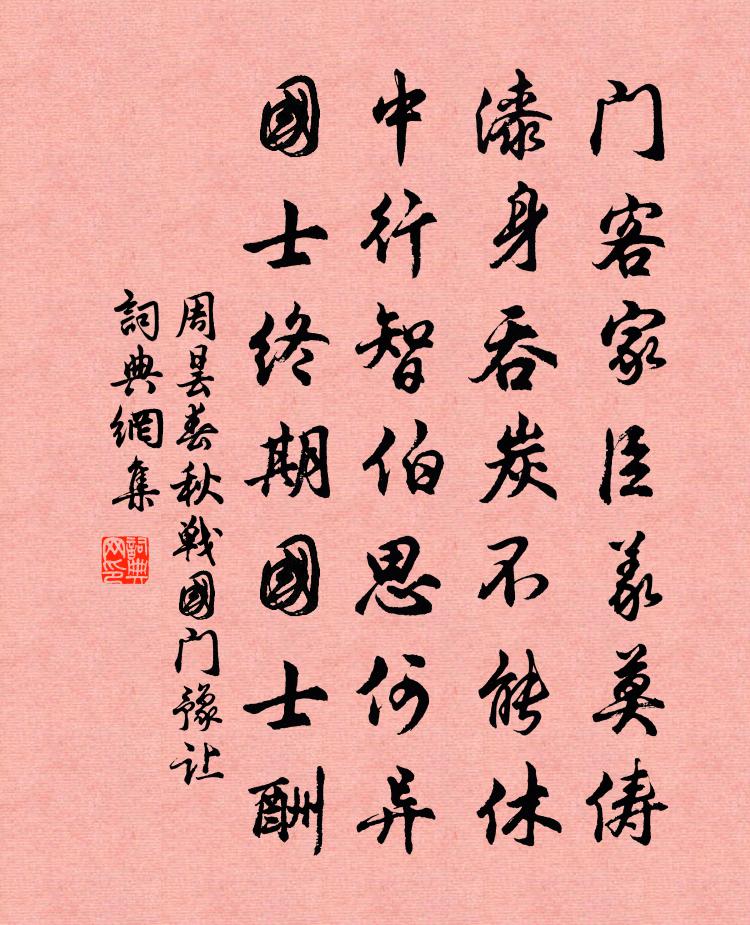 门客家臣義莫俦
漆身吞炭不能休
中行智伯思何异
國士终期國士酬
周昙春秋戰國门豫让
詞典網集
詞典网印